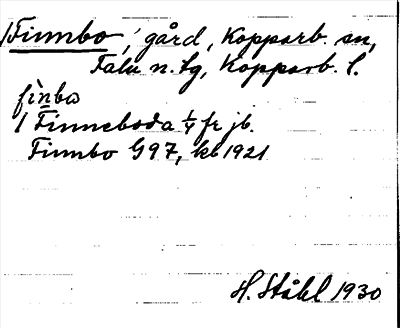 Finnbo, gård, Kopparb. sn,
Falu n. tg, Kopparb. l.
fìnba
/ Finneboda ¼ fr jb.
Finnbo G97, kb 1921
H. Ståhl 1930